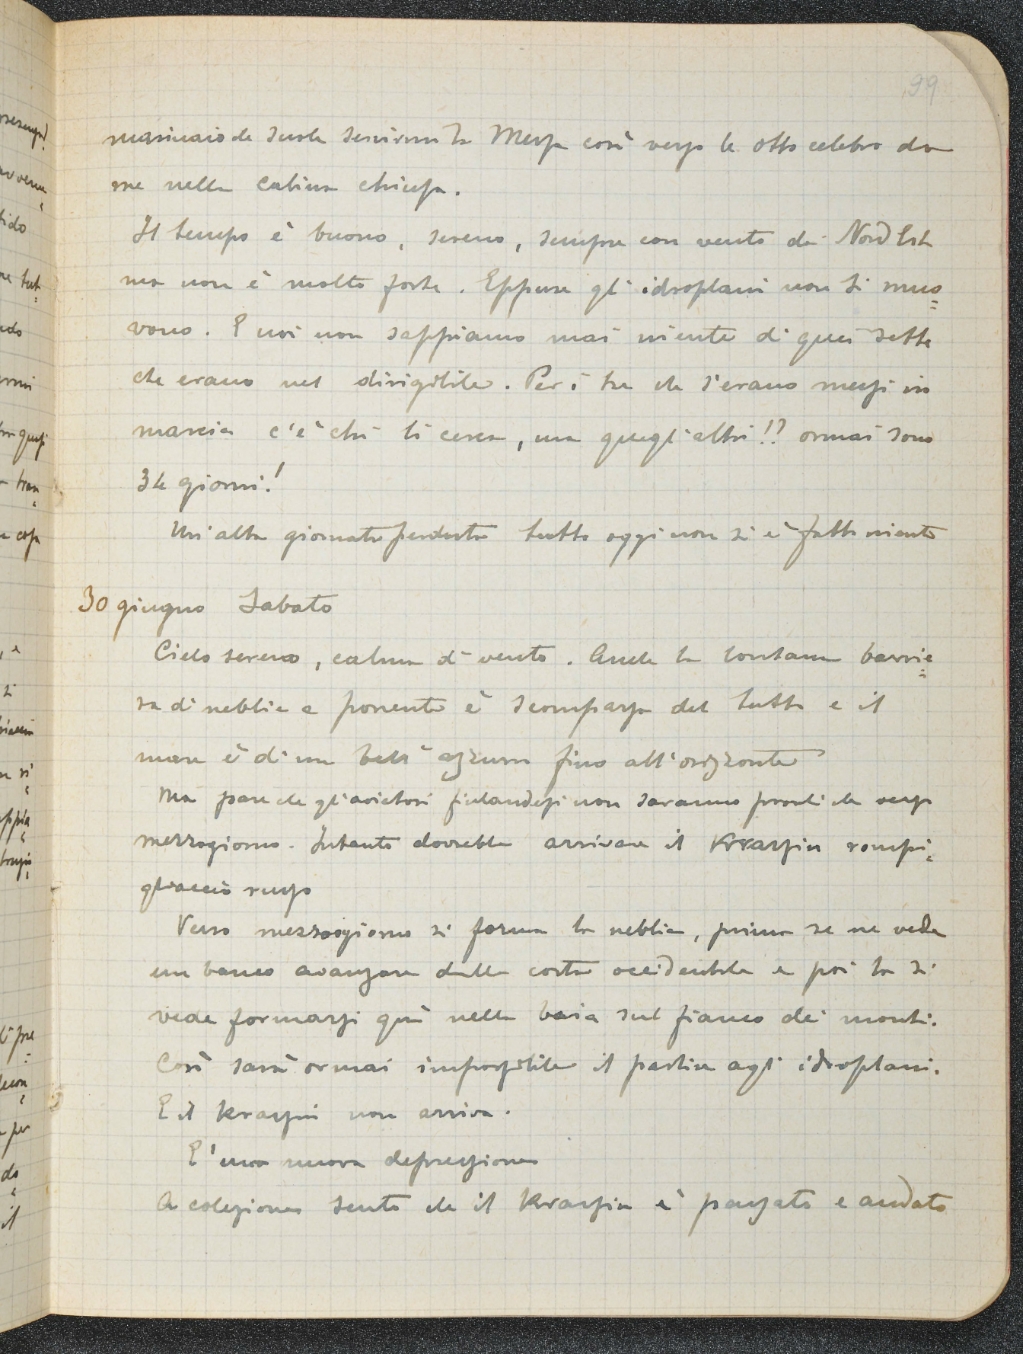 99
marinaio che vuole servirmi la Messa così verso le otto celebro da
me nella cabina chiusa.
Il tempo è buono, sereno, sempre con vento da Nord Est
ma non è molto forte. Eppure gli idroplani non si muo=
vono. E noi non sappiamo mai niente di quei sette
che erano nel dirigibile. Per i tre che s'erano messi in
marcia c'è chi li cerca, ma quegli altri!? ormai sono
36 giorni!
Un'altra giornata perduta tutto oggi non si è fatto niente
30 giugno Sabato
Cielo sereno, calma di vento. Anche la lontana barrie=
ra di nebbia a ponente è scomparsa del tutto e il
mare è di un bell'azzurro fino all'orizzonte
Ma pare che gli aviatori finlandesi non saranno pronti che verso
mezzogiorno. Intanto dovrebbe arrivare il Krassin rompi=
ghiaccio russo
Verso mezzogiorno si forma la nebbia, prima se ne vede
un banco avanzare dalla costa occidentale e poi la si
vede formarsi quì nella baia sul fianco dei monti.
Così sarà ormai impossibile il partire agli idroplani.
E il Krassin non arriva.
E' una nuova depressione
A colezione sento che il Krassin è passato e andato